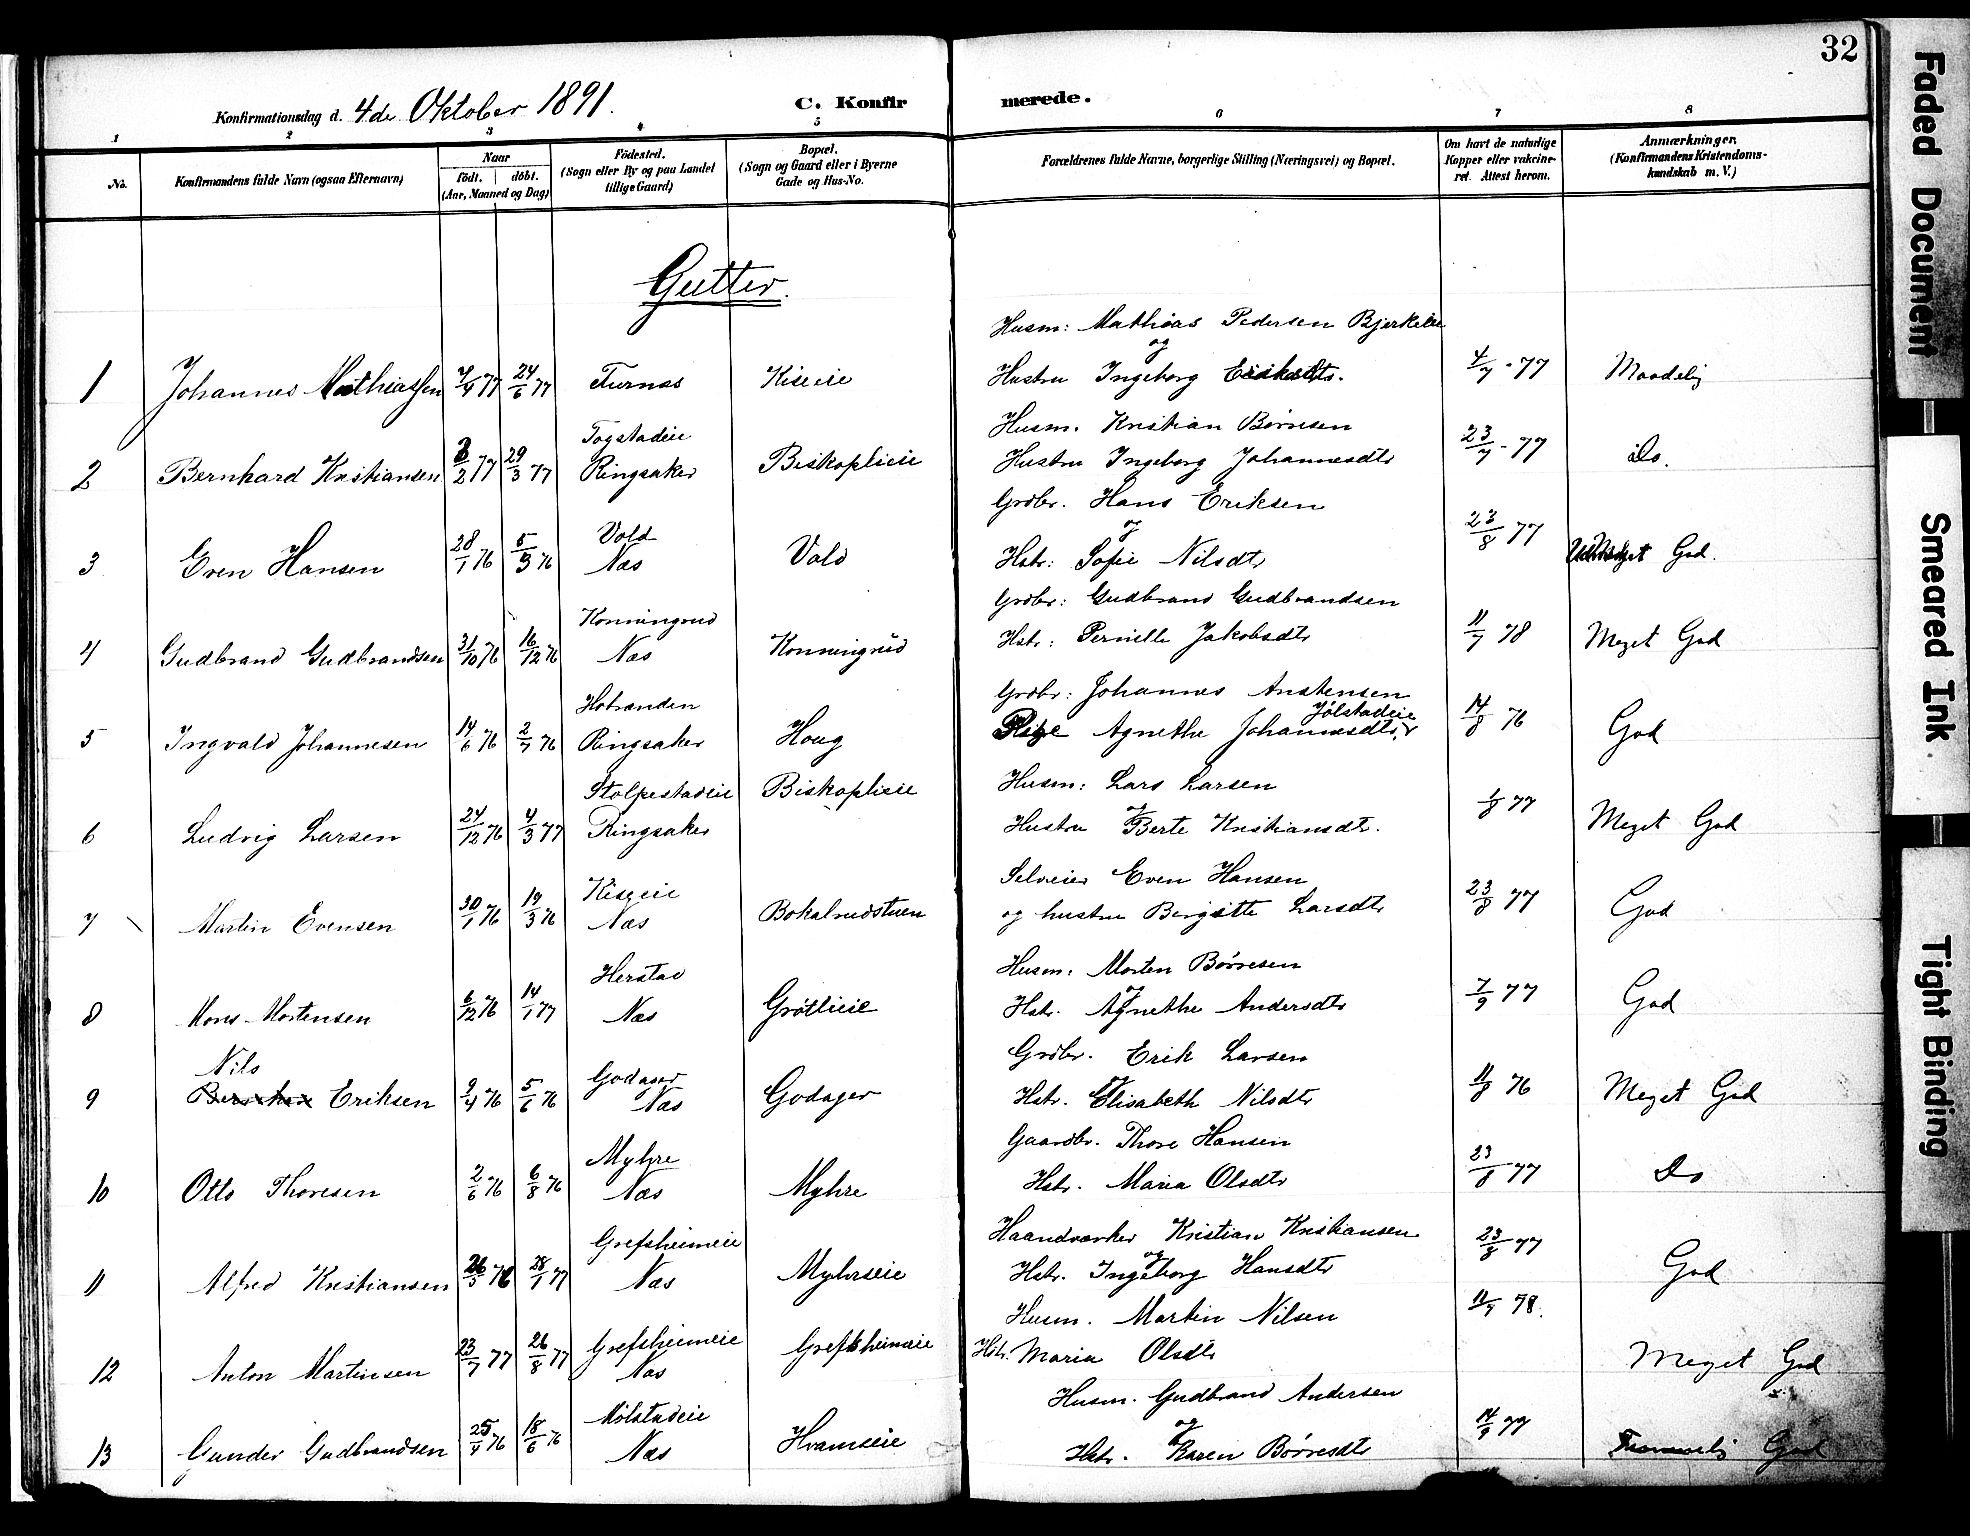 32
Konfirmationsdag d. 4de Oktober 1891.
C. Konfirmerede.
1 2 3 4 5 6 7 8
No.
Konfirmandens fulde Navn (ogsaa Efternavn)
Naar
født. døbt.
(Aar, Maaned og Dag)
Fødested.
(Sogn eller By og paa Landet
tillige Gaard)
Bopæl.
(Sogn og Gaard eller i Byerne
Gade og Hus-No.
Forældrenes fulde Navne, borgerlige Stilling (Næringsvei) og Bopæl.
Om havt de naturlige
Kopper eller vakcine-
ret. Attest herom.
Anmærkninger.
(Konfirmandens Kristendoms-
kundskab m. V.)
Gutter.
Husm: Mathias Pedersen Bjerkelie
og
1 Johannes Mathiassen 7/4 77 24/6 77 Furnæs Kiseeie Hustru Ingeborg 4/7 - 77 Maadelig
Togstadeie Husm. Kristian Børresen
2 Bernhard Kristiansen 8/2 77 29/3 77 Ringsaker Biskoplieie Hustru Ingeborg Johannesdtr 23/7 - 77 do.
Vold Grdbr. Hans Eriksen
og
3 Even Hansen 28/1 76 5/3 76 Næs Vold Hstr: Sofie Nilsdtr 23/8 77 Meget God.
Konningrud Grdbr: Gudbrand Gudbrandsen
4 Gudbrand Gudbrandsen 31/10 76 16/12 76 Næs Konningrud Hstr: Pernille Jakobsdtr 11/7 78 Meget God
Hotranden Grdbr: Johannes Anstensen
Jølstadeie
5 Ingvald Johannesen 14/6 76 2/7 76 Ringsaker Houg Pige Agnethe Johannesdtr. 14/8 76 God
Stolpestadeie Biskoplieie Husm: Lars Larsen
og
6 Ludvig Larsen 24/12 76 4/3 77 Ringsaker Hustru Berte Kristiansdtr. 1/8 77 Meget God
Kiseeie Selveier Even Hansen
7 Martin Evensen 30/1 76 19/3 76 Næs Bokalrudstuen og hustru Bergitte Larsdtr 23/8 77 God
Herstad Husm: Morten Børresen
og
8 Mons Mortensen 6/12 76 14/1 77 Næs Grøtlieie Hstr. Agnethe Andersdtr 7/9 77 God
Nils Godager Grdbr. Erik Larsen
og
9 Eriksen 9/4 76 5/6 76 Næs Godager Hstr. Elisabeth Nilsdtr 11/8 76 Meget God
Myhre Gaardbr. Thore Hansen
10 Otto Thoresen 2/6 76 6/8 76 Næs Myhre Hstr. Maria Olsdtr 23/8 77 Do
Grefsheimeie Haandværker Kristian Kristiansen
og
11 Alfred Kristiansen 26/5 76 28/1 77 Næs Myhrseie Hstr. Ingeborg Hansdtr 23/8 77 God
Grefsheimeie Husm. Martin Nilsen 11/7 78.
12 Anton Martinsen 23/7 77 26/8 77 Næs Grefsheimeie Hstr. Maria Olsdtr Meget God
Mølstadeie Husm. Gudbrand Andersen
og
13 Gunder Gudbrandsen 25/4 76 18/6 76 Næs Hramseie Hstr. Karen Børresdtr 14/9 77 Temmelig God
Faded Document
Smeared Ink
Tight Binding